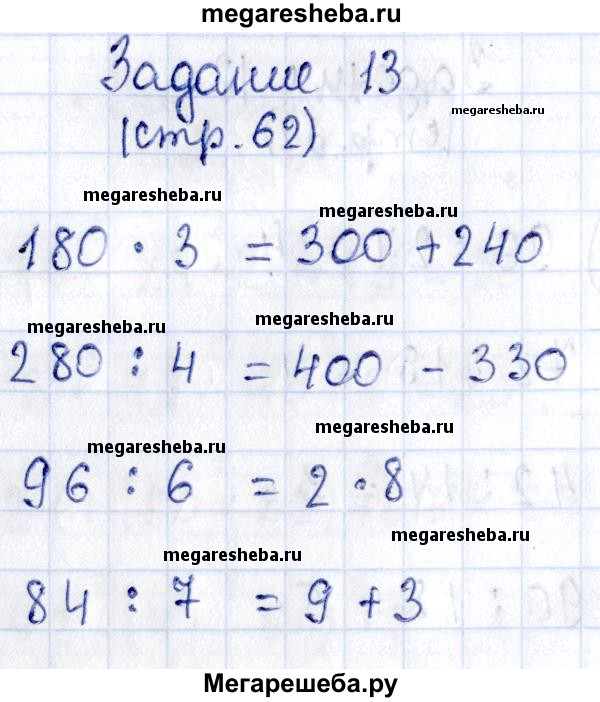 megaresheba.ru
Задание 13
megaresheba.ru
(стр. 62)
megaresheba.ru
megaresheba.ru
180 · 3 = 300 + 240
megaresheba.ru
megaresheba.ru
280 : 4 = 400 - 330
megaresheba.ru
megaresheba.ru
96 : 6 = 2 · 8
megaresheba.ru
megaresheba.ru
84 : 7 = 9 + 3
Мегарешеба.ру